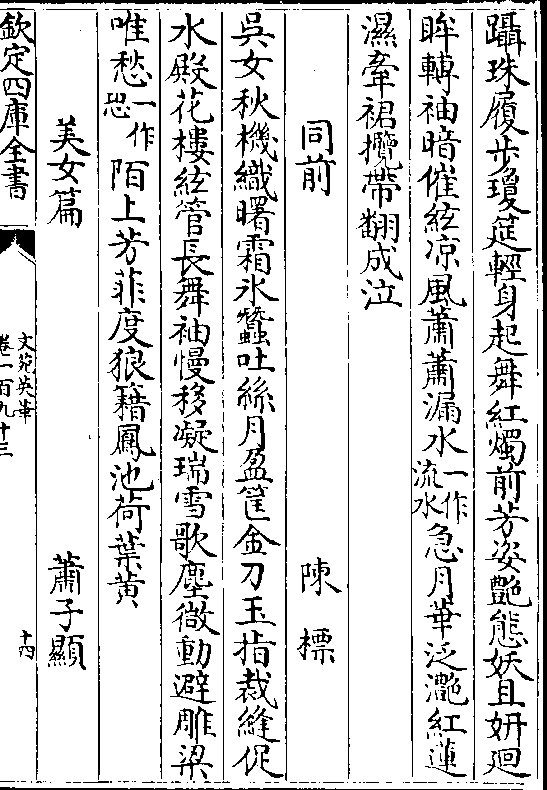 躡珠履步瓊筵輕身起舞紅燭前芳姿艷態妖且妍廻
眸轉袖暗催絃凉風蕭蕭漏水一作流水急月華泛灧紅蓮
濕牽裙攬帶翻成泣
同前 陳標
吳女秋機織曙霜氷蠶吐絲月盈筐金刀玉指裁縫促
水殿花樓絃管長舞袖慢移凝瑞雪歌塵微動避雕梁
唯愁一作恐陌上芳菲度狼籍鳳池荷葉黃
美女篇 蕭子顯
欽定四庫全書
文苑英華
卷一百九十三
十四